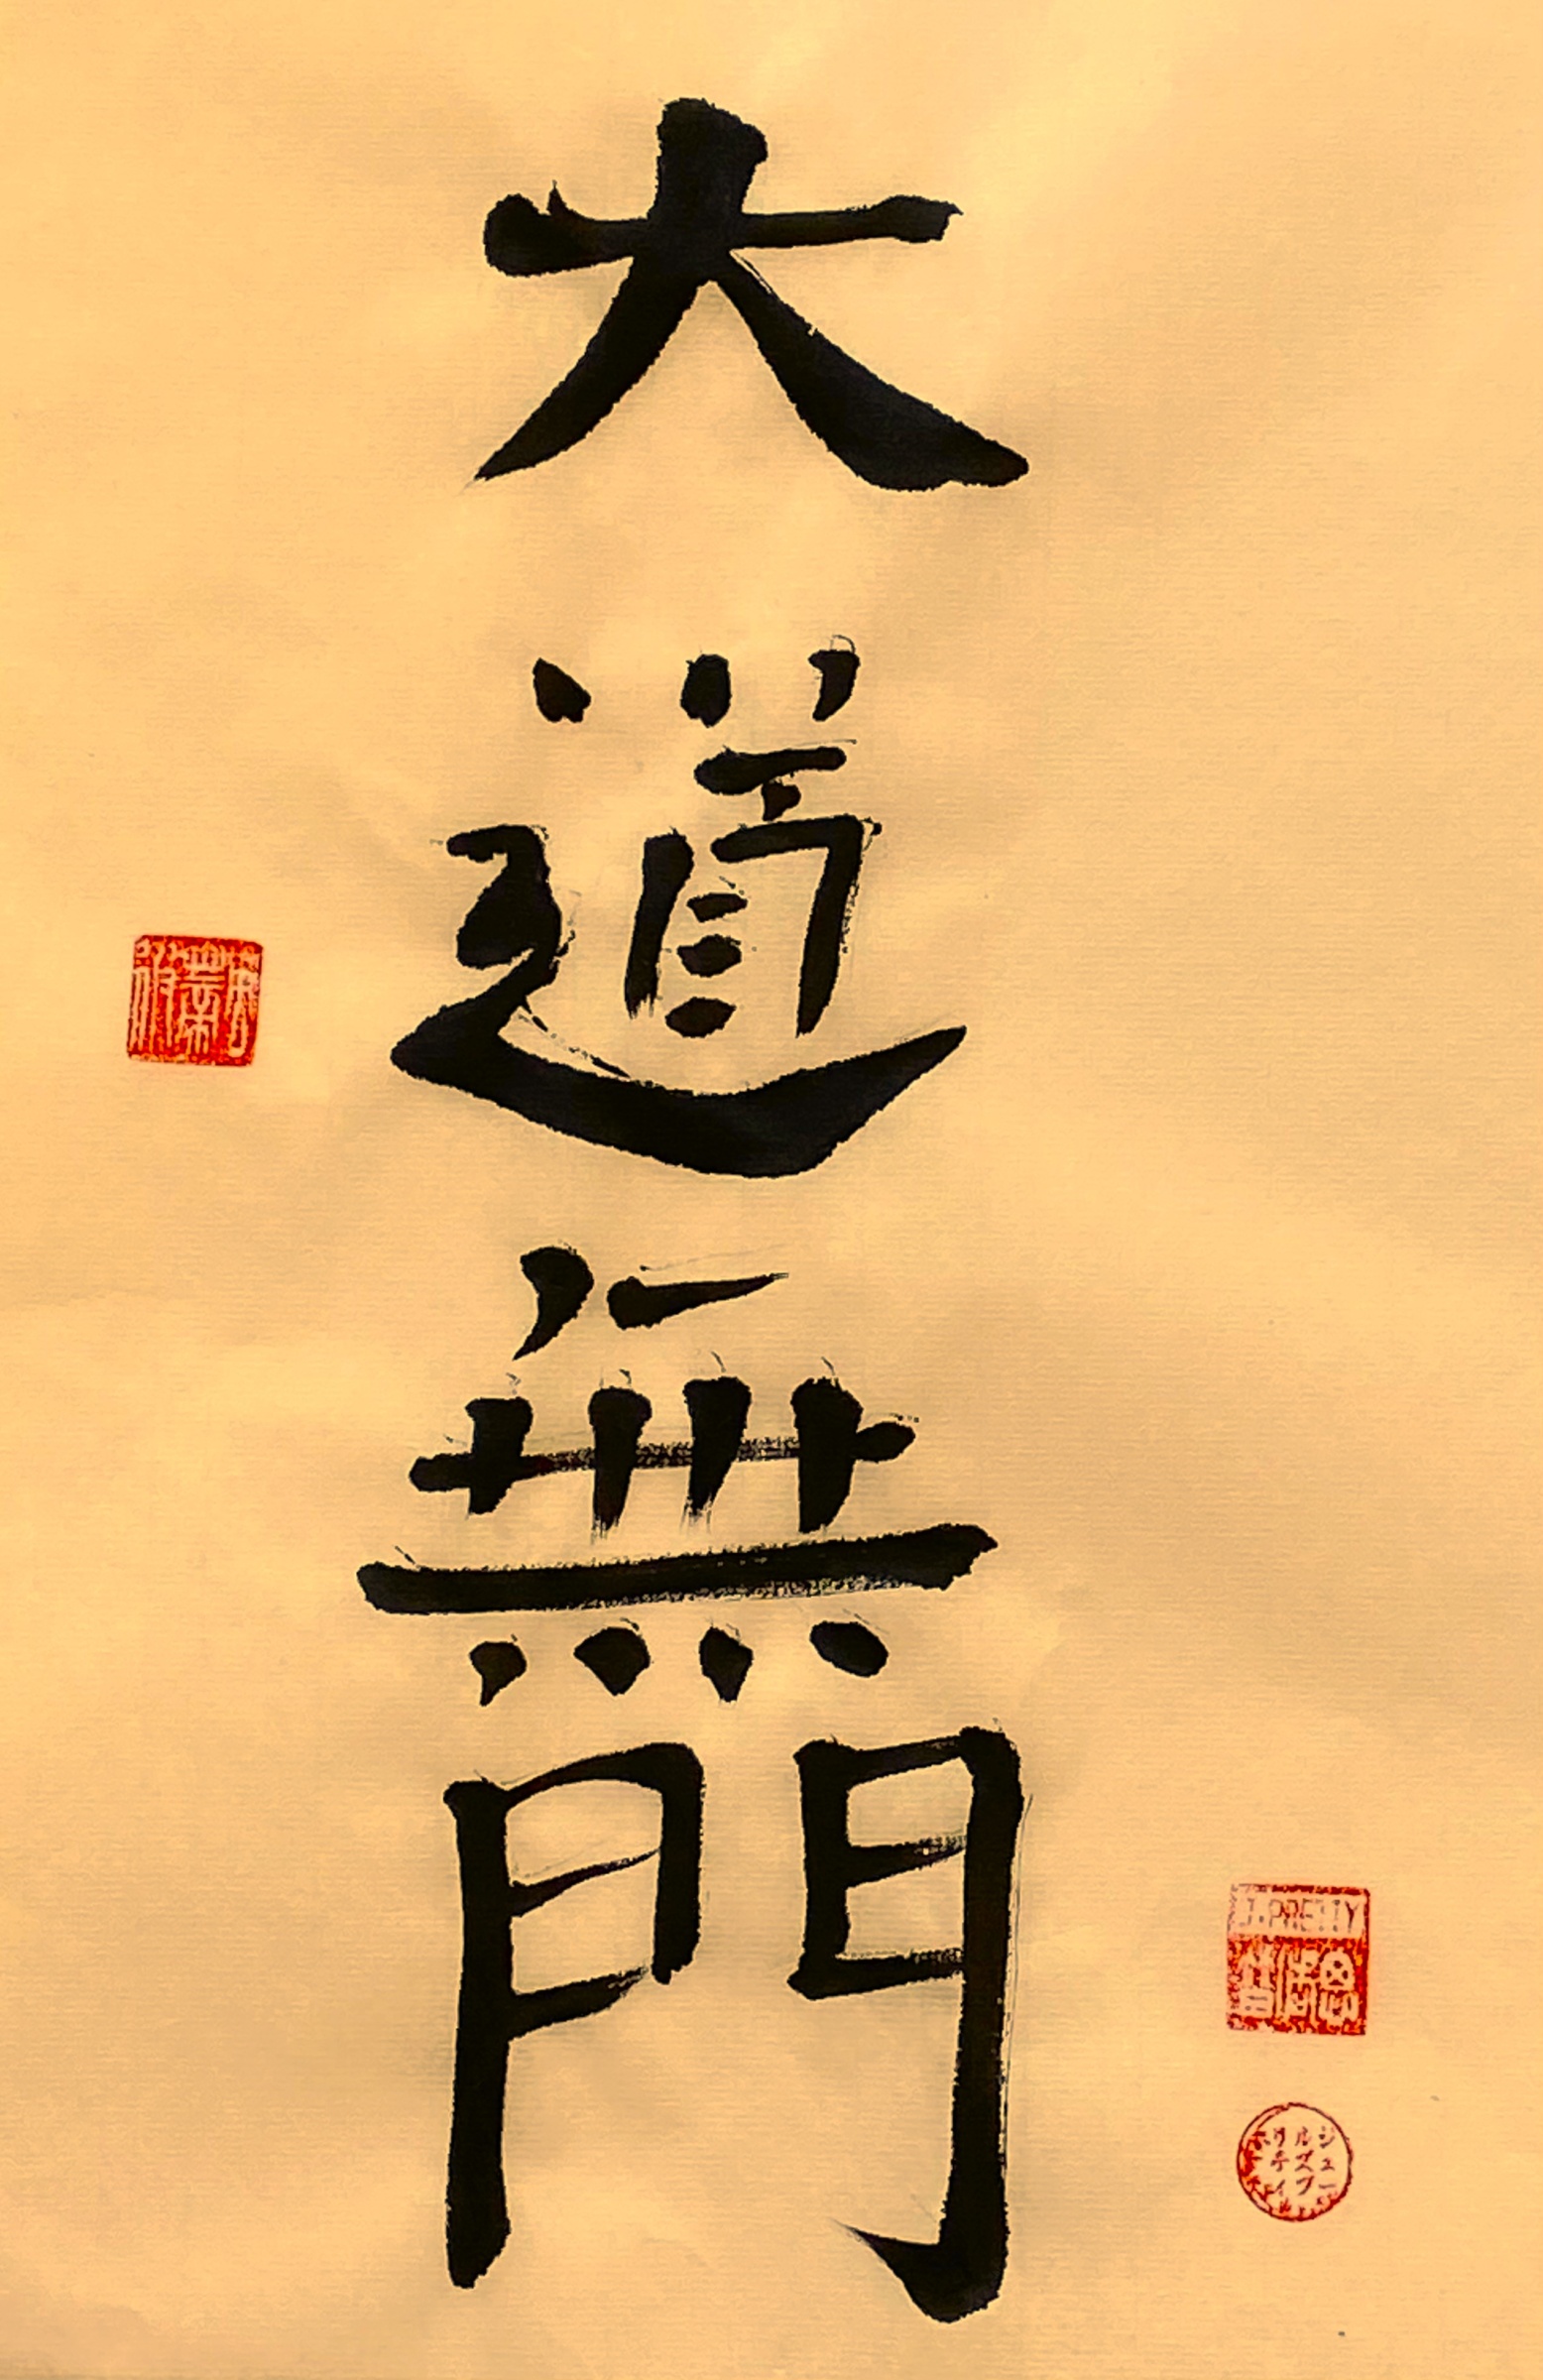 大道無門
J.PRETTY
ジュー
ルズプ
リティ